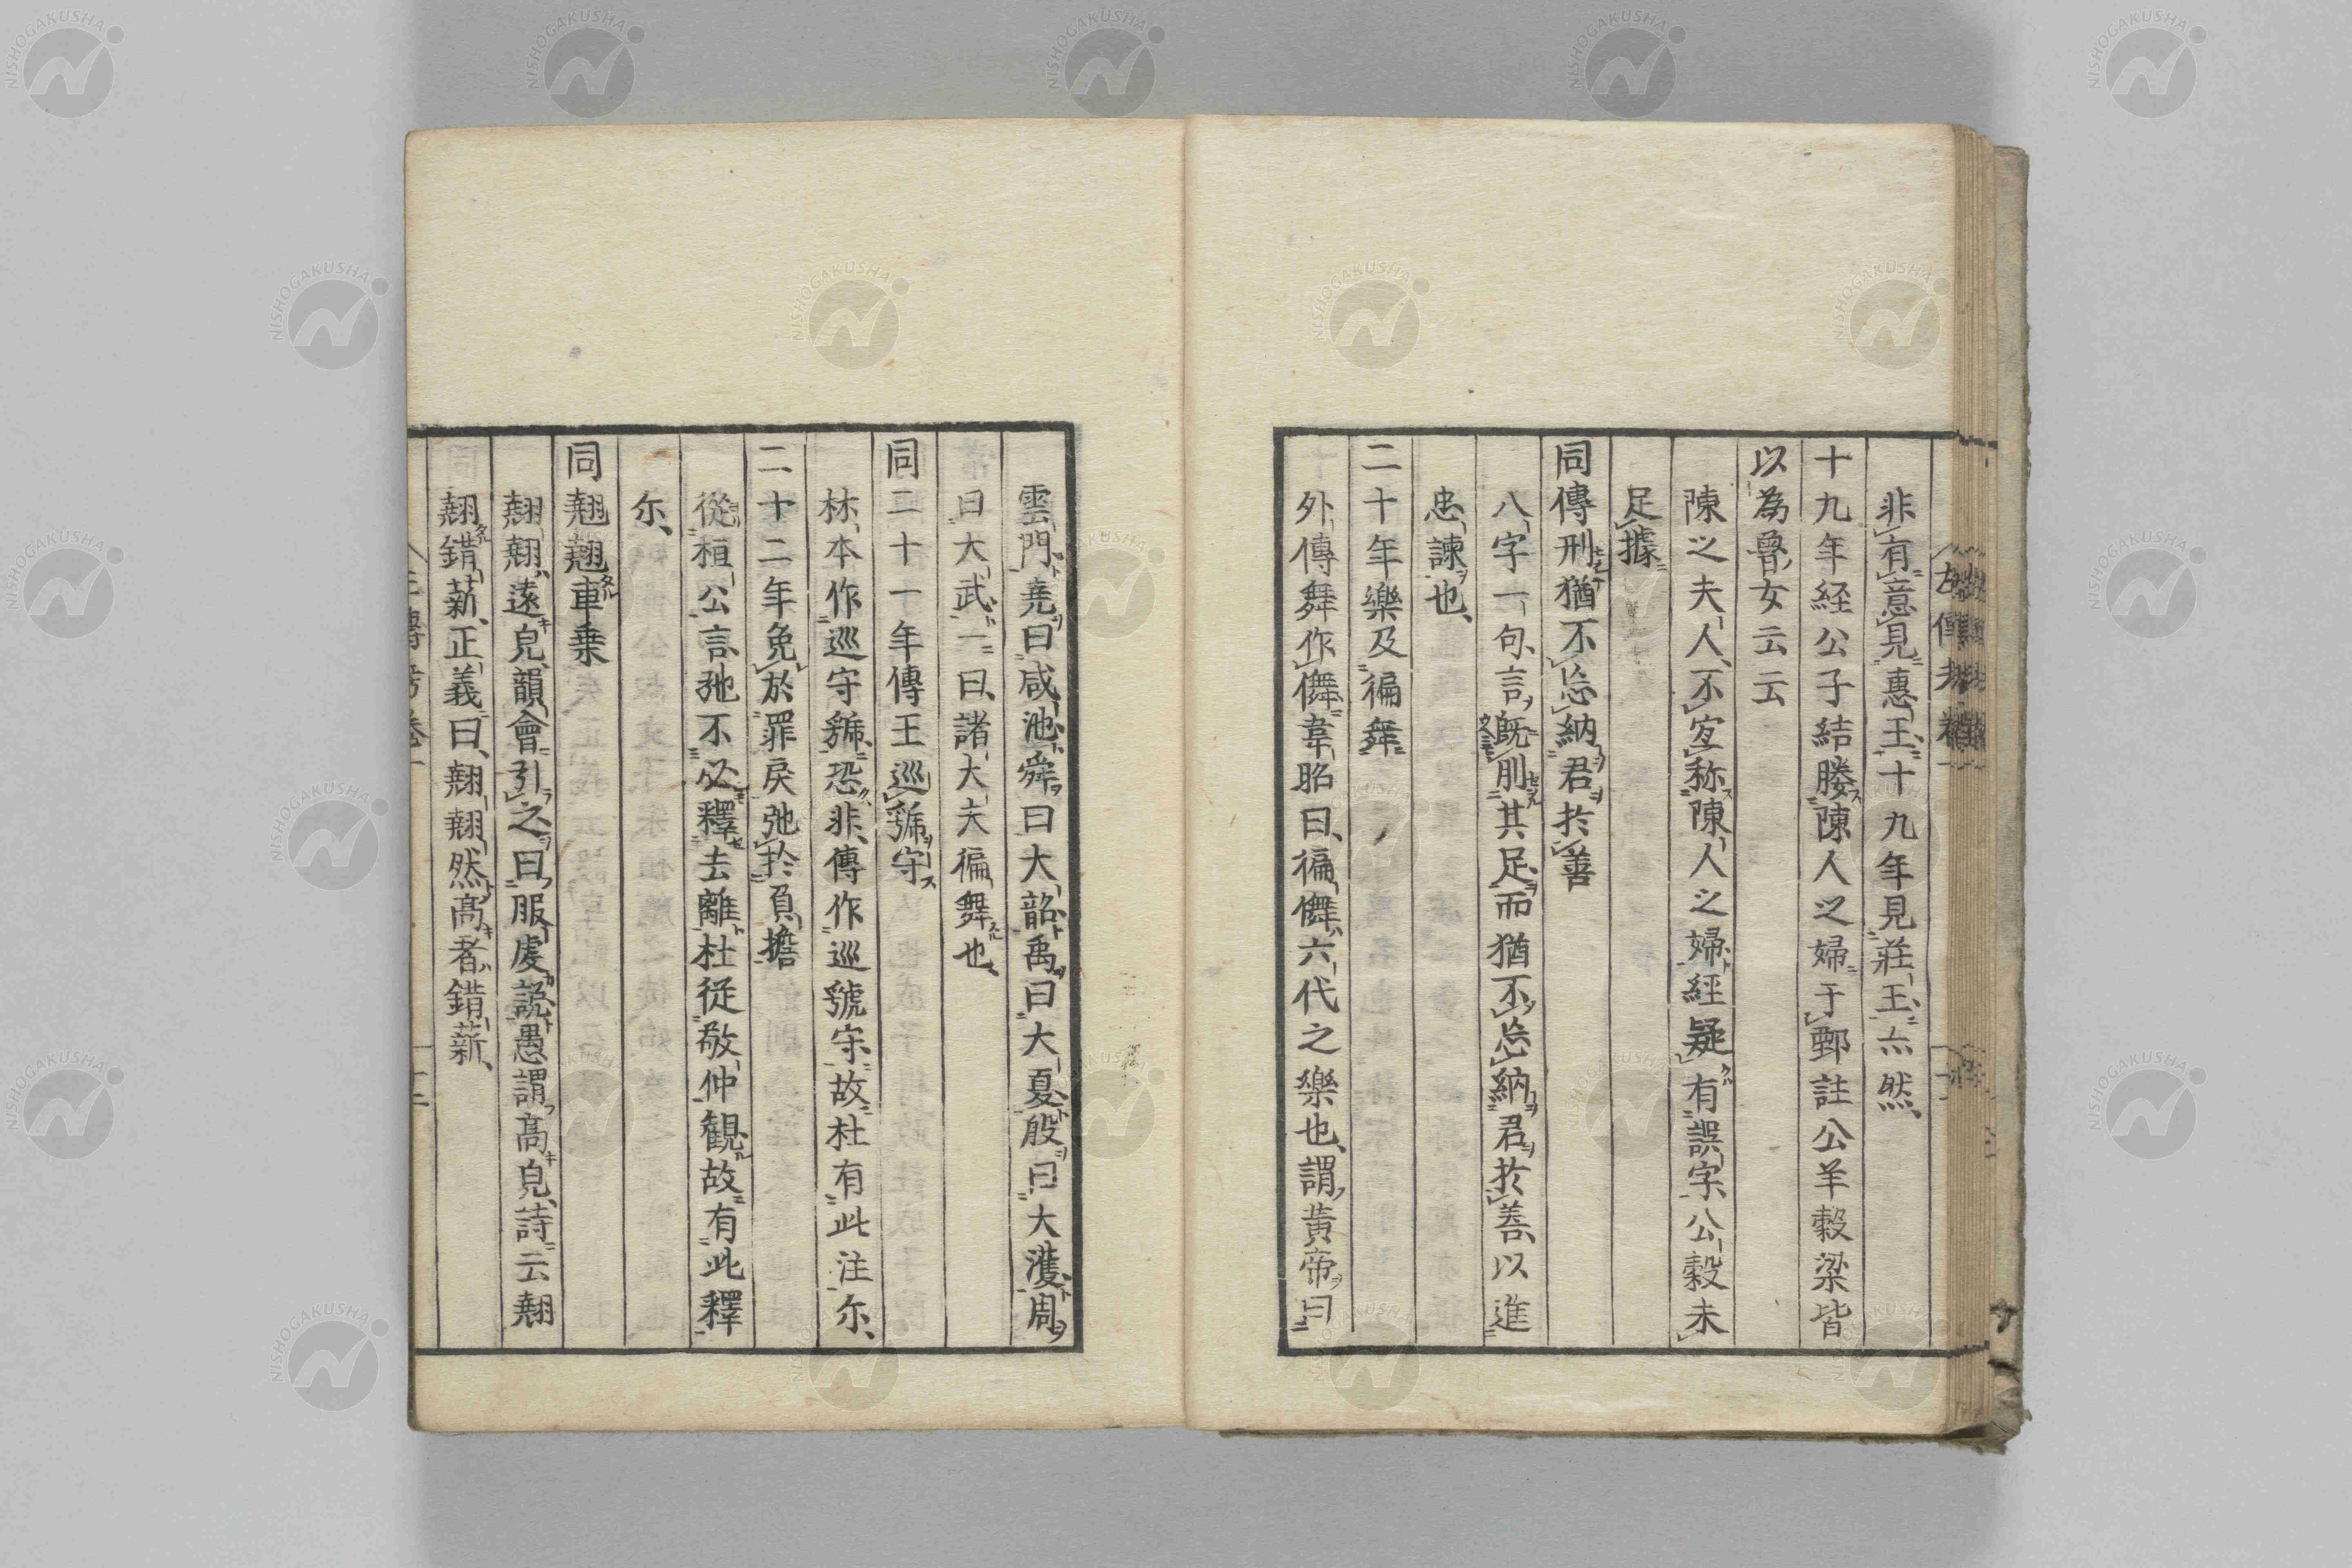 非有意見惠王十九年見莊王亦然
十九年経公子結媵陳人之婦于鄄註公羊穀梁皆
以為魯女云云
陳之夫人不宜称陳人之婦經疑有誤字公穀未
足據
同傳刑猶不忘納君於善
八字一句言既刖其足而猶不忘納君於善以進
忠諫也
二十年樂及徧舞
外傳舞作儛韋昭曰徧儛六代之樂也謂黄帝曰
雲門堯曰咸池舜曰大韶禹曰大夏殷曰大濩周
曰大武一曰諸大夫徧舞也
同二十一年傳王巡虢守
林本作巡守虢恐非傳作巡虢守故杜有此注尓
二十二年免於罪戻弛於負擔
從桓公言弛不必釋去離杜從敬仲観故有此釋
尓
同翹翹車乗
翹翹遠皃韻會引之曰服虔説愚謂髙皃詩云翹
翹錯薪正義曰翹翹然髙者錯薪
NISHOGAKUSHA